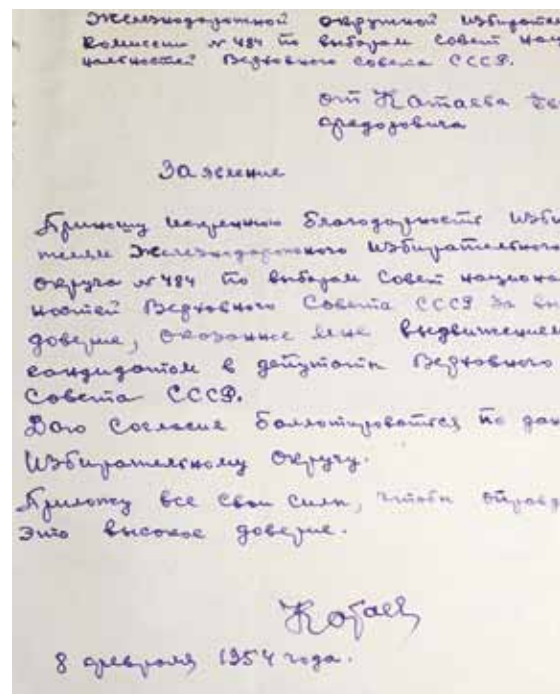 Железнодорожной окружной Избират
Комиссии № 484 по выборам Совет Нац
нальностей Верховного Совета СССР.
от Катаева
Федоровича
Заявление
Приношу искреннюю благодарность Изби
телям Железнодорожного Избирательного
округа № 484 по выборам Совет национ
ностей Верховного Совета СССР за вы
доверие, оказанное мне выдвижением
кандидатом в депутаты Верховного
Совета СССР.
Даю согласие баллотироваться по дан
Избирательному округу.
Приложу все свои силы, чтобы оправд
это высокое доверие.
Катаев
8 февраля 1954 года.